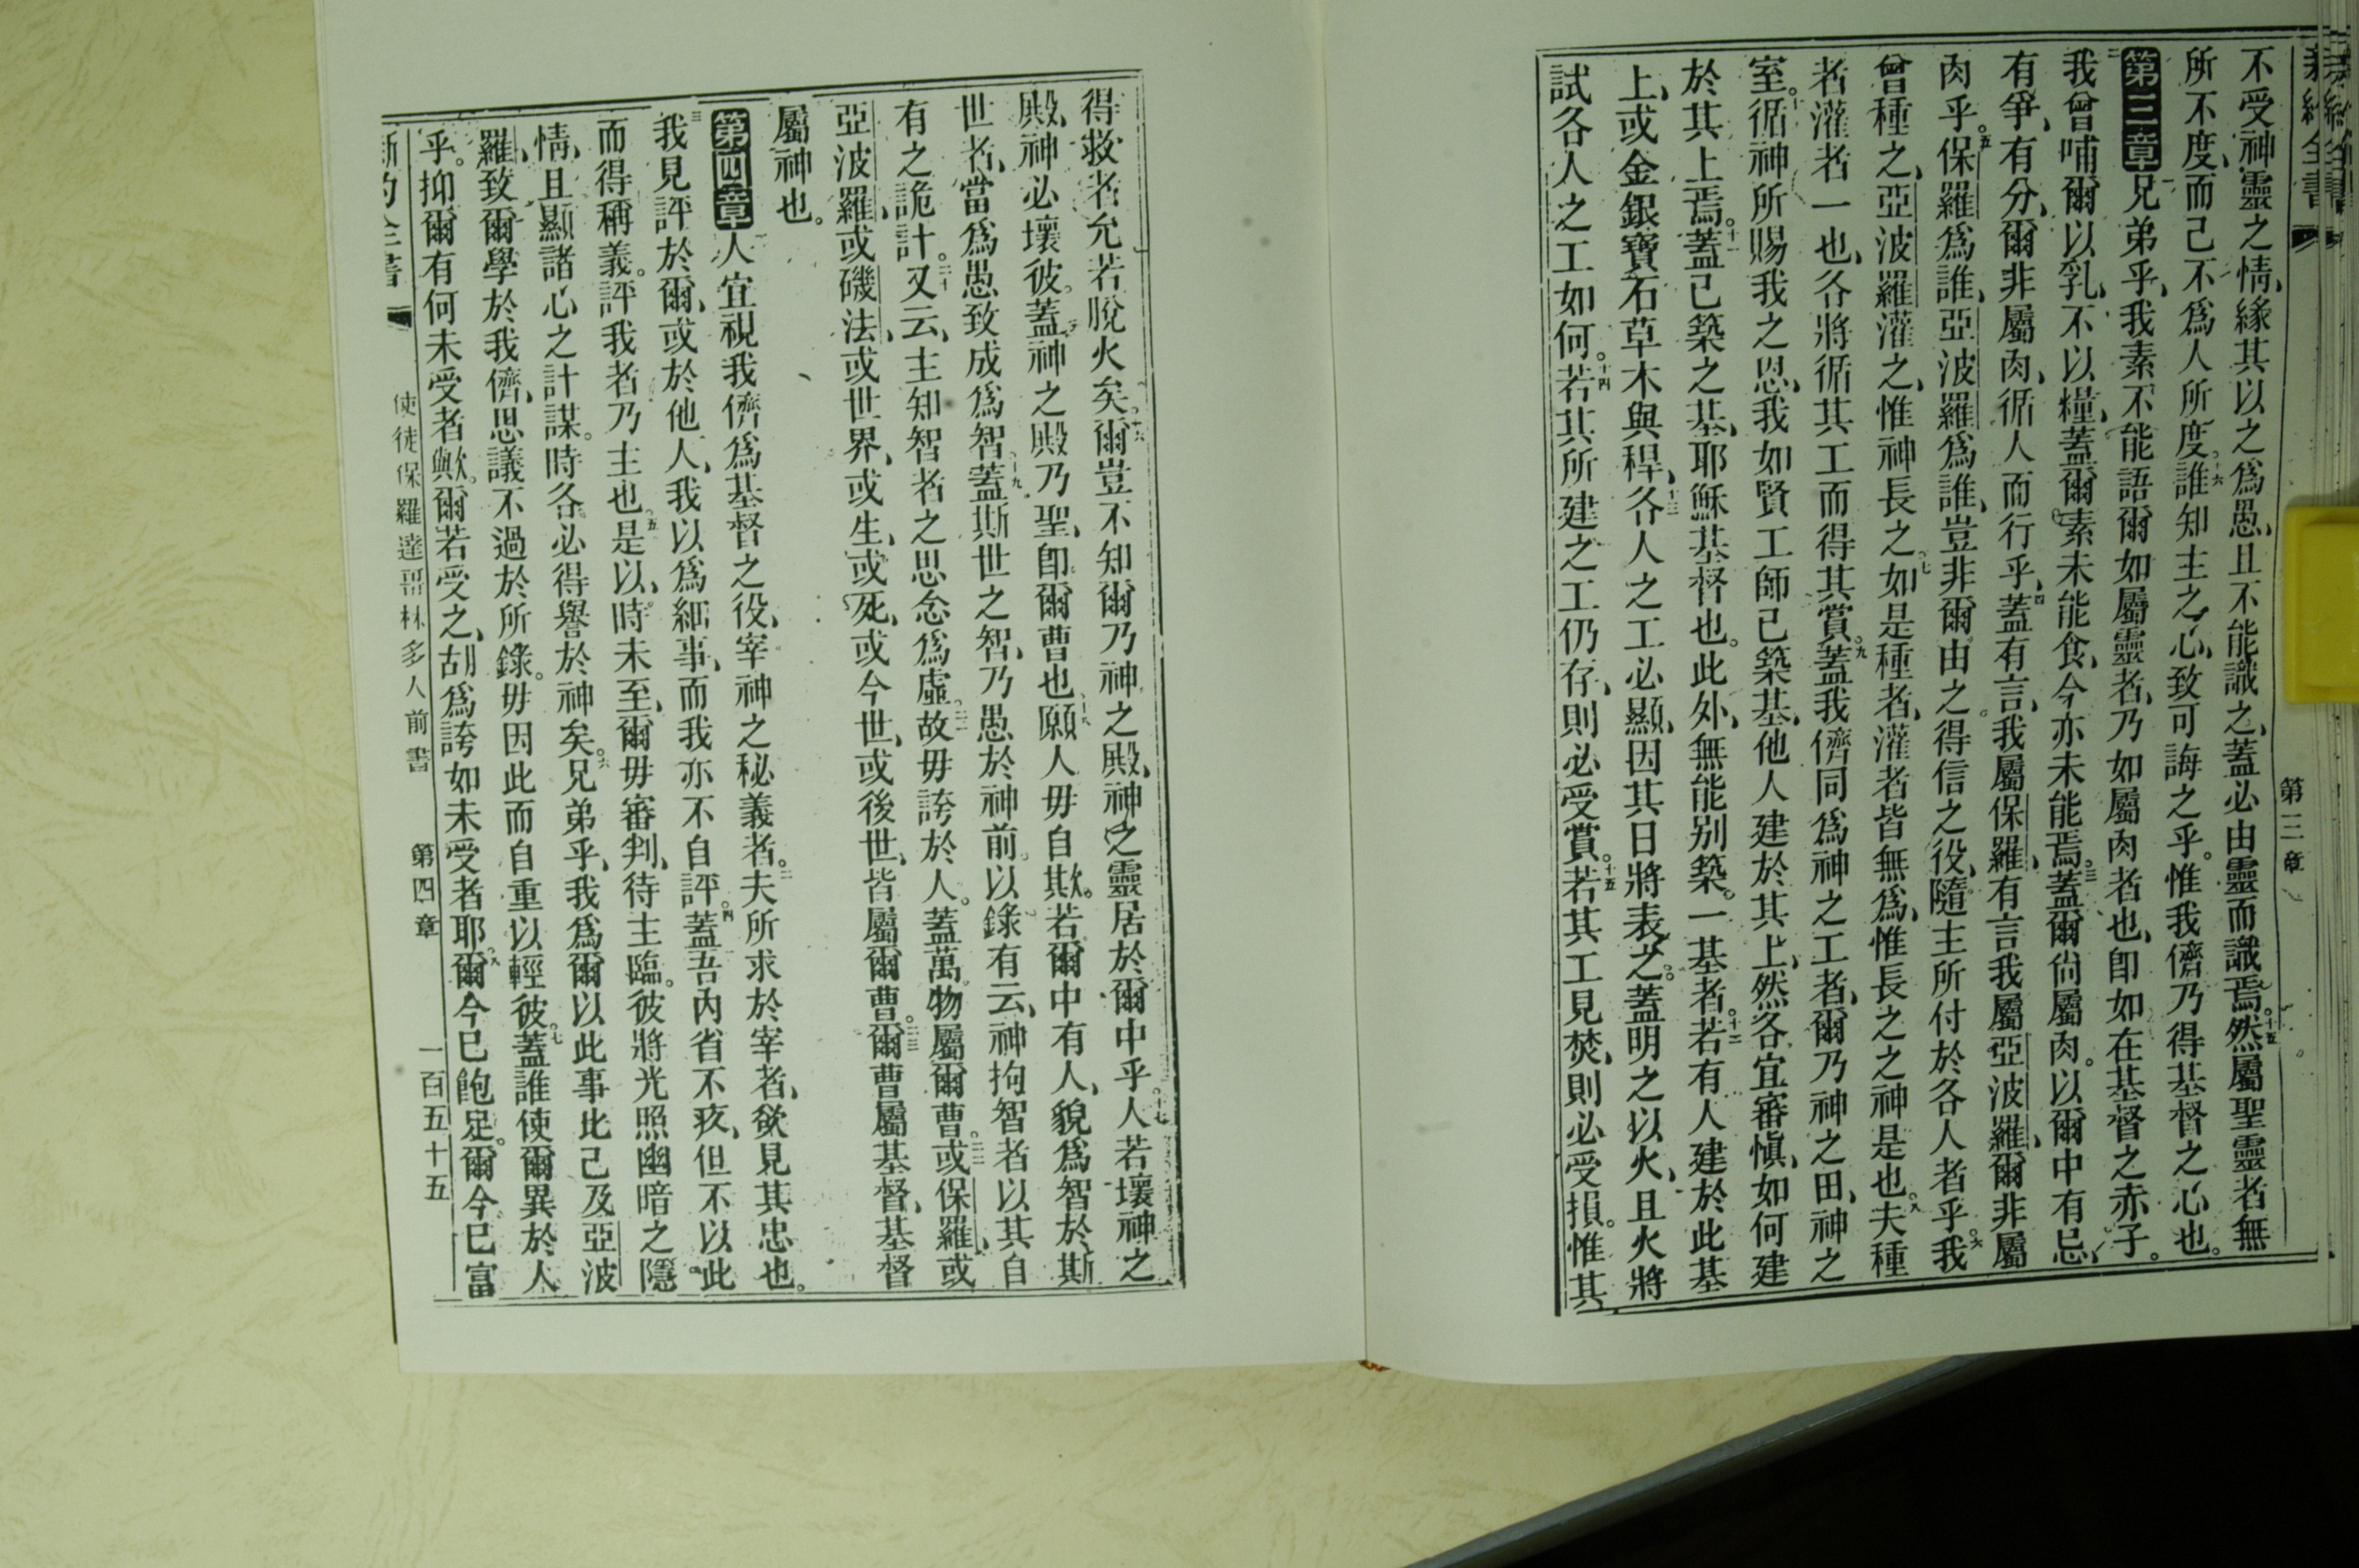 第三章
不受神靈之情、緣其以之爲愚、且不能識之、蓋必由靈而識焉。十五然屬聖靈者無
所不度、而己不爲人所度。十六誰知主之心、致可誨之乎。惟我儕乃得基督之心也。
第三章一兄弟乎、我素不能語爾如屬靈者、乃如屬肉者也、卽如在基督之赤子。
二我曾哺爾以乳、不以糧、蓋爾素未能食、今亦未能焉。三蓋爾尙屬肉。以爾中有忌、
有爭、有分、爾非屬肉、循人而行乎、四蓋有言、我屬保羅、有言我屬亞波羅、爾非屬
肉乎。五保羅爲誰、亞波羅爲誰、豈非爾由之得信之役、隨主所付於各人者乎。六我
曾種之、亞波羅灌之、惟神長之、七如是種者、灌者皆無爲、惟長之之神是也。八夫種
者灌者一也、各將循其工而得其賞。九蓋我儕同爲神之工者、爾乃神之田、神之
室。十循神所賜我之恩、我如賢工師已築基、他人建於其上、然各宜審愼、如何建
於其上焉。十一蓋已築之基、耶穌基督也。此外、無能別築一基者。十二若有人建於此基
上、或金銀寶石草木與稈、十三各人之工必顯、因其日將表之。蓋明之以火、且火將
試各人之工如何。十四若其所建之工仍存、則必受賞。十五若其工見焚、則必受損。惟其
得救者允若脫火矣。十六爾豈不知爾乃神之殿、神之靈居於爾中乎。十七人若壞神之
殿、神必壞彼。蓋神之殿乃聖、卽爾曹也、十八願人毋自欺。若爾中有人、貌爲智於斯
世者、當爲愚致成爲智。十九蓋斯世之智、乃愚於神前。以錄有云、神拘智者以其自
有之詭計。二十又云、主知智者之思念爲虛。二一故毋誇於人。蓋萬物屬爾曹。二二或保羅、或
亞波羅、或磯法、或世界、或生、或死、或今世、或後世、皆屬爾曹。二三爾曹屬基督、基督
屬神也。
第四章一人宜視我儕爲基督之役、宰神之秘義者。二夫所求於宰者、欲見其忠也。
三我見評於爾、或於他人、我以爲細事、而我亦不自評。四蓋吾內省不疚、但不以此
而得稱義。評我者乃主也。五是以、時未至、爾毋審判、待主臨。彼將光照幽暗之隱
情、且顯諸心之計謀。時各必得譽於神矣。六兄弟乎、我爲爾以此事比己及亞波
羅、致爾學於我儕、思議不過於所錄。毋因此而自重以輕彼。七蓋誰使爾異於人
乎。抑爾有何未受者歟。爾若受之、胡爲誇如未受者耶。八爾今已飽足。爾今已富
使徒保羅達哥林多人前書 第四章 一百五十五